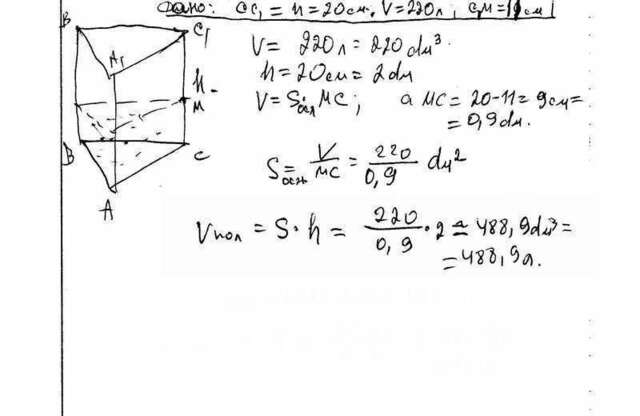 Дано: CC₁ = h = 20см. V = 220л; C₁M = 11см
B
C₁
A₁
h-
M
B
C
A
V = 220л = 220 дм³.
h = 20см = 2дм
V = Sосн MC; а MC = 20-11 = 9см =
= 0,9 дм.
Sосн = V/MC = 220/0,9 дм²
Vпол = S·h = 220/0,9 · 2 ≈ 488,9 дм³ =
= 488,9л.